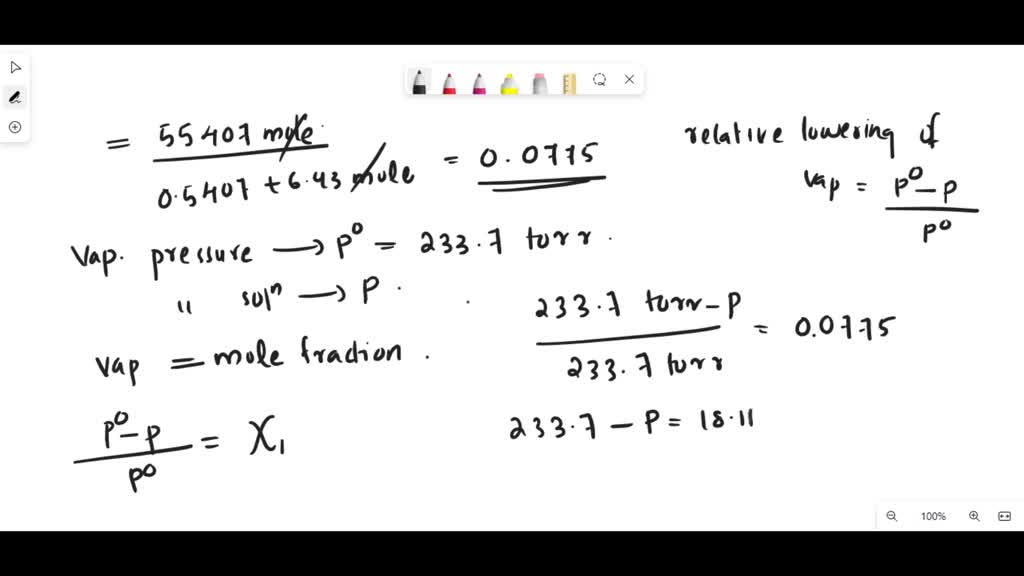 = 55407 mole / 0.5407 + 6.43 mole = 0.0775
relative lowering of
vap = p⁰ - p / p⁰
Vap. pressure → p⁰ = 233.7 torr.
" solⁿ → P.
vap = mole fraction.
p⁰ - p / p⁰ = X₁
233.7 torr - P / 233.7 torr = 0.0775
233.7 - P = 18.11
100%